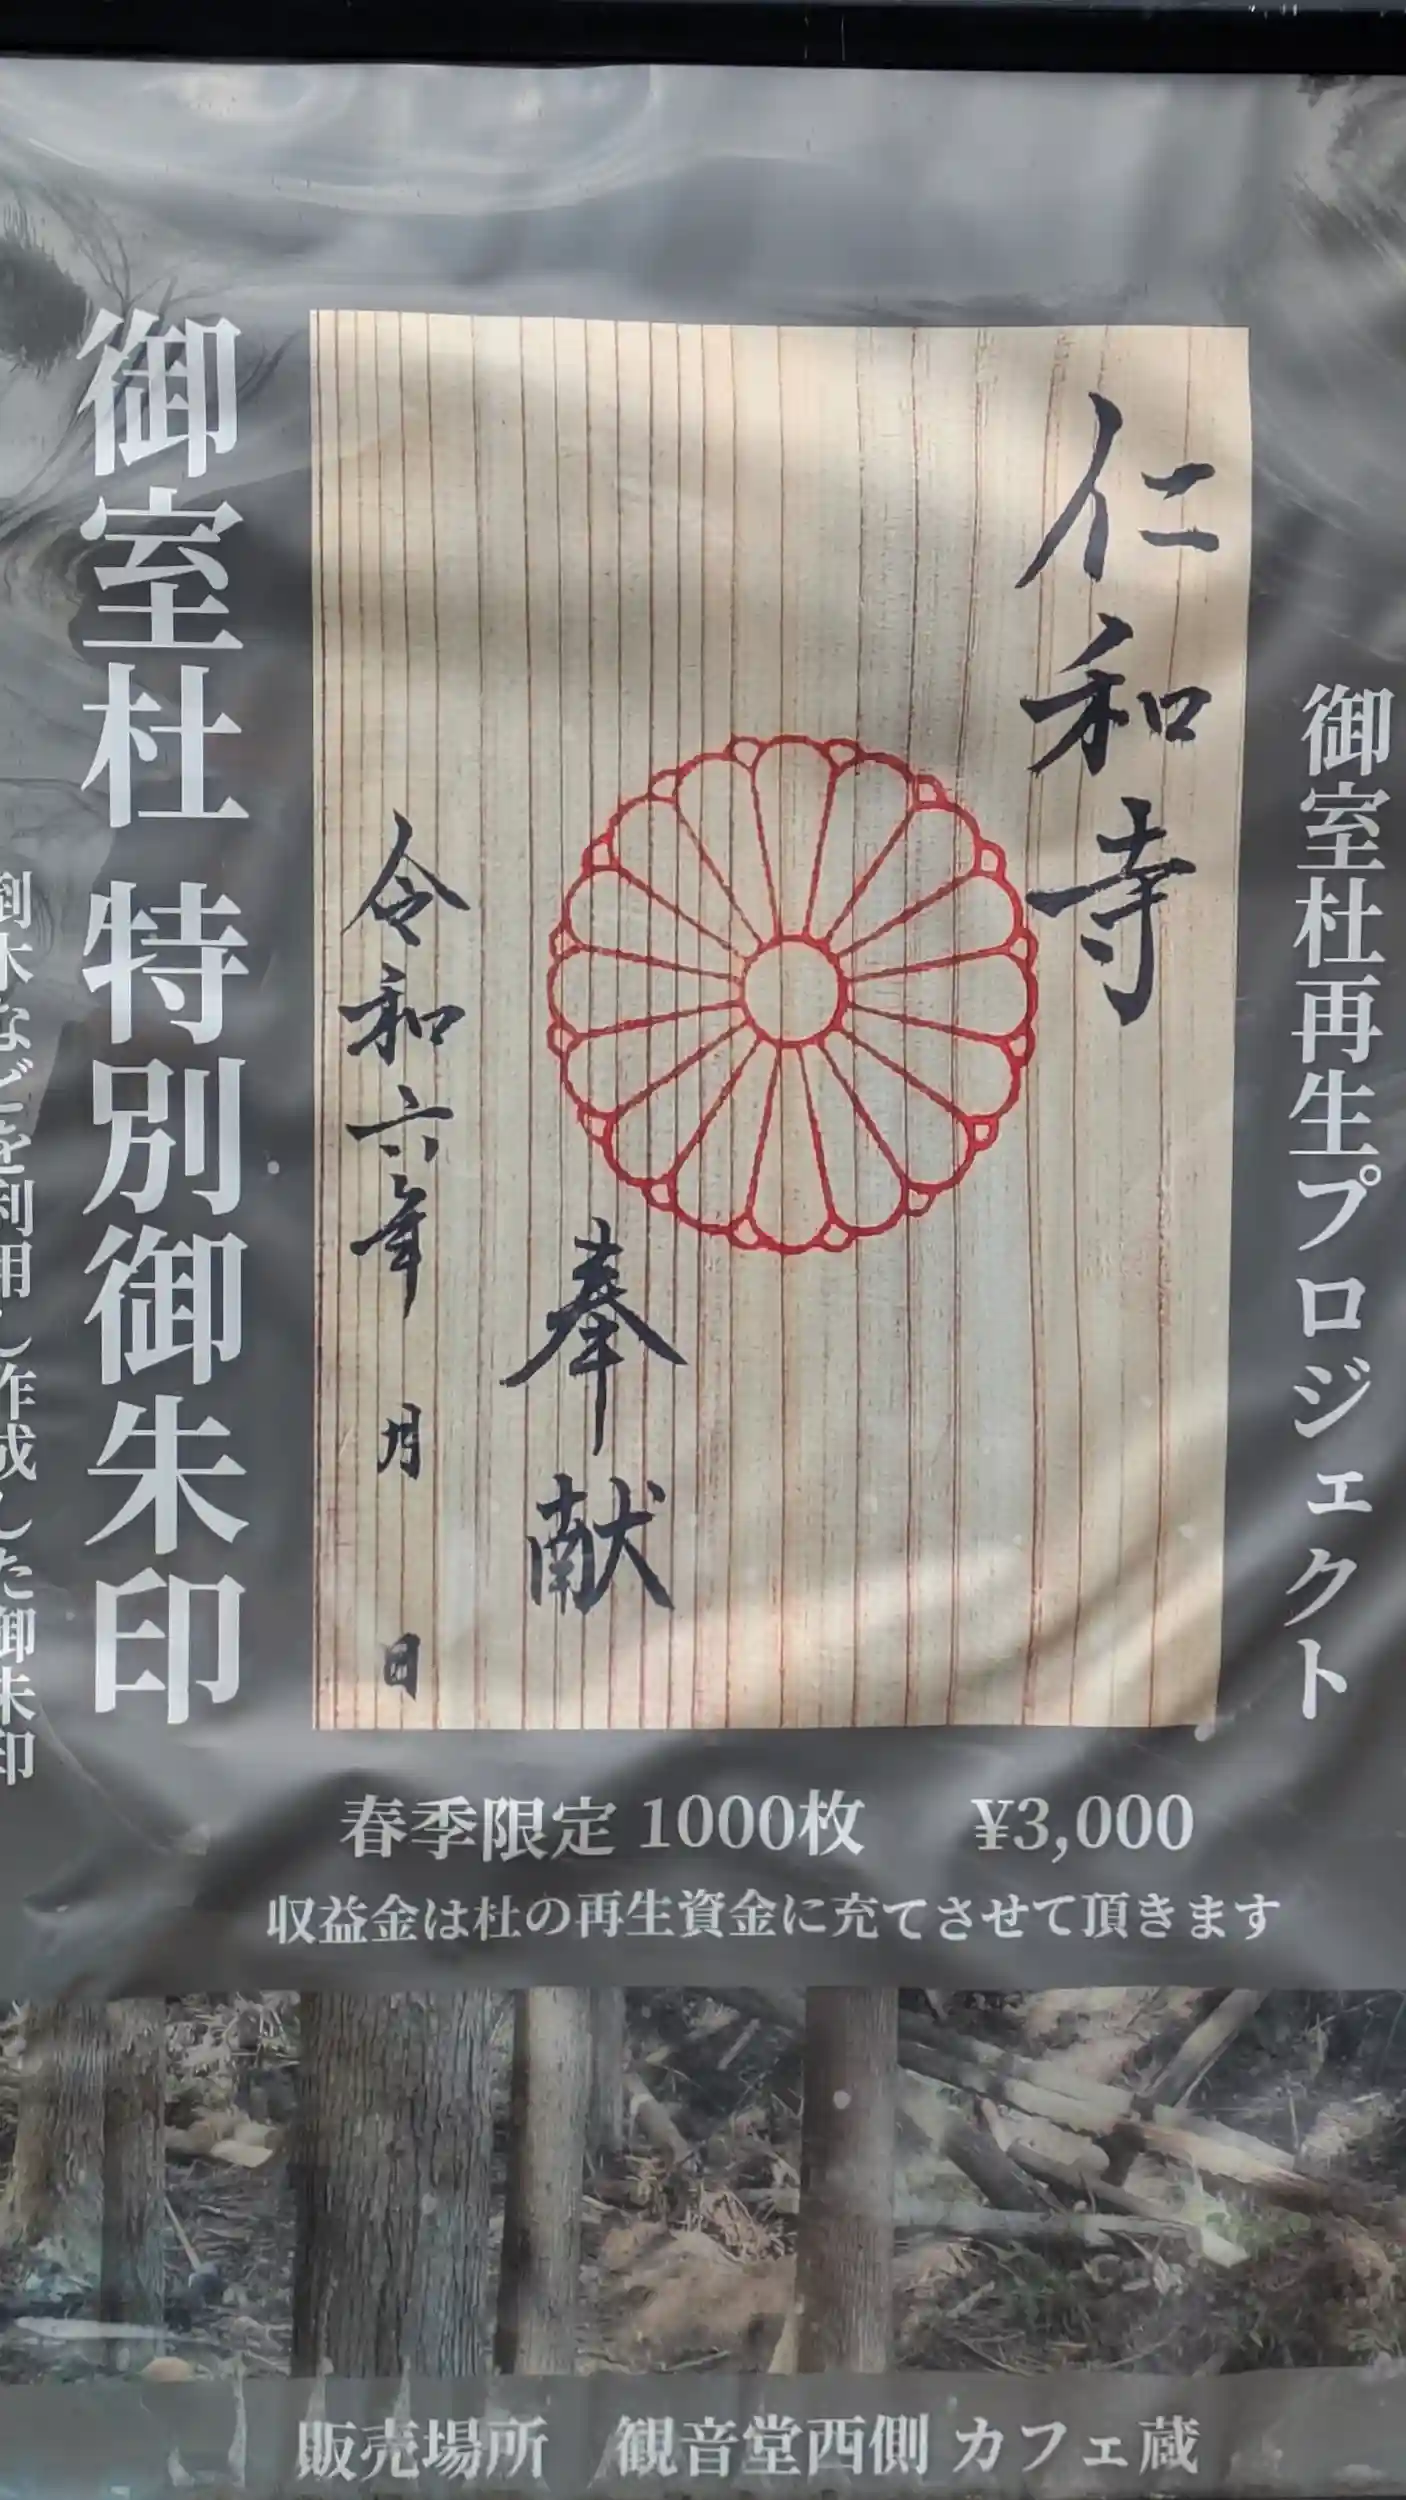 御室杜再生プロジェクト
仁和寺
奉献
令和六年 月 日
御室杜 特別御朱印
倒木などを利用し作成した御朱印
春季限定 1000枚 ¥3,000
収益金は杜の再生資金に充てさせて頂きます
販売場所 観音堂西側 カフェ蔵